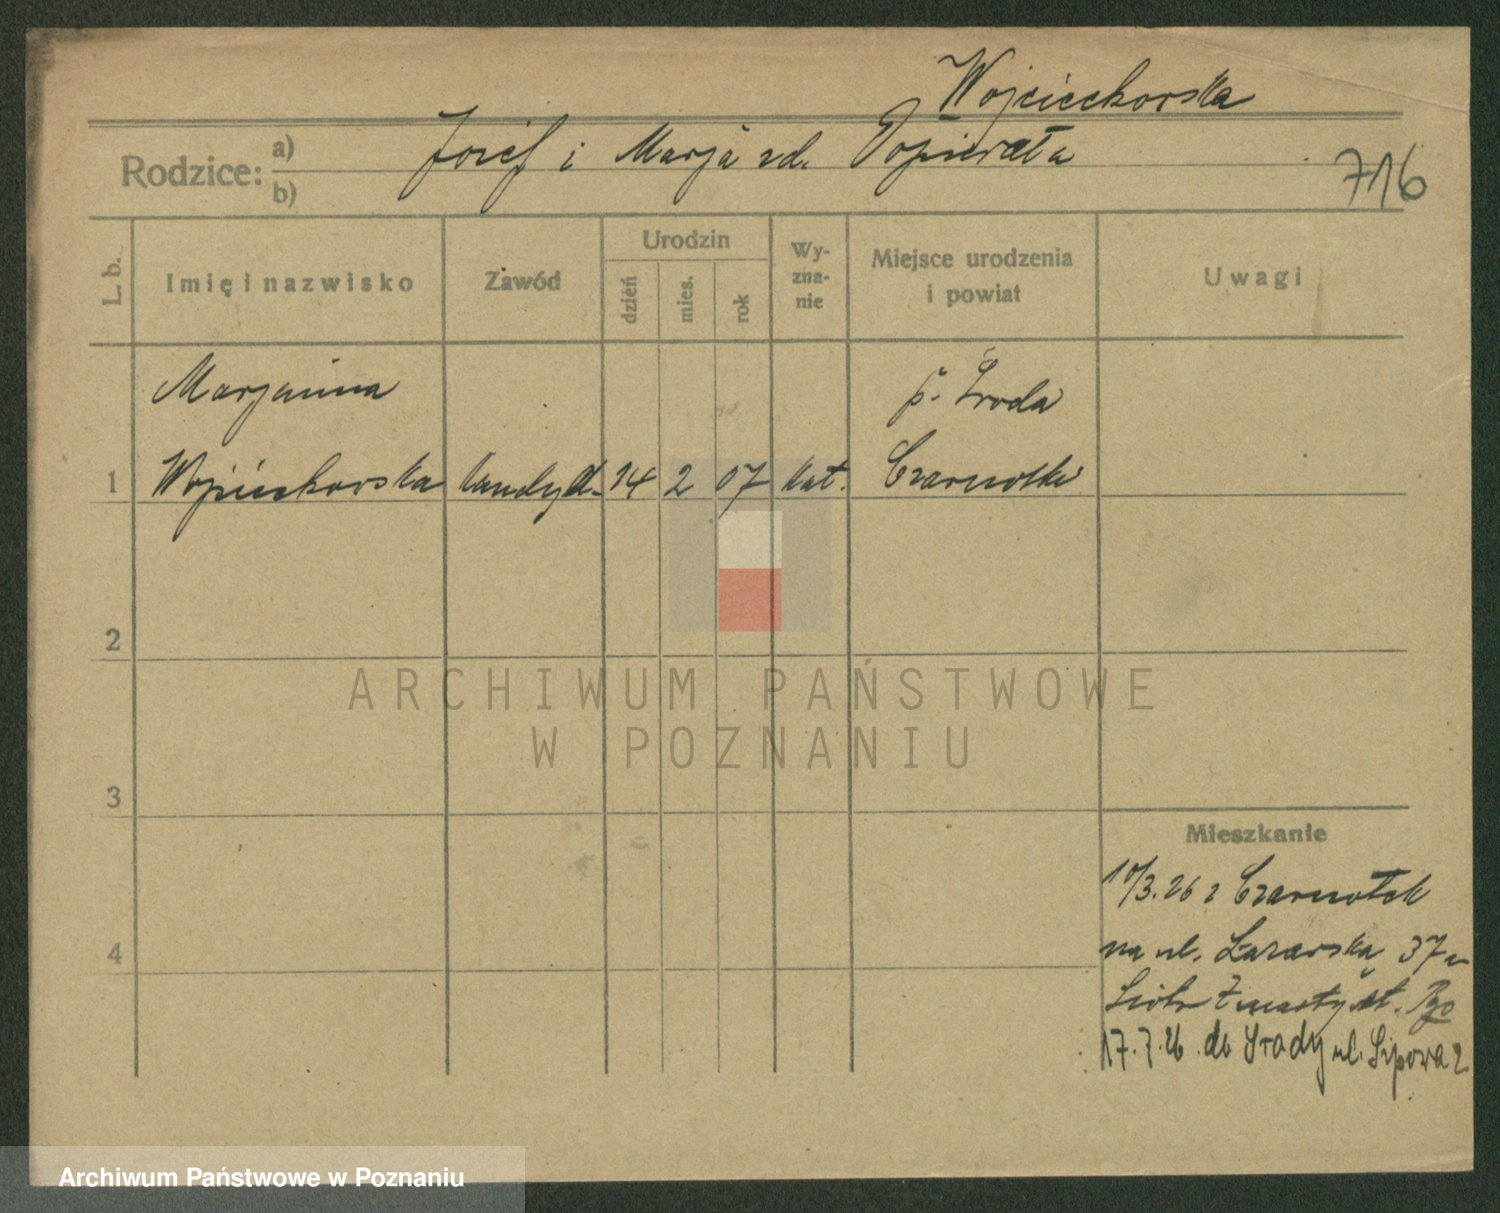 Wojciechowska
Rodzice: a) b) Józef i Marja zd. Popierała
716
L. b.
Imię i nazwisko
Zawód
Urodzin
dzień
mies.
rok
Wy-
zna-
nie
Miejsce urodzenia
i powiat
Uwagi
Marjanna
p. Środa
1 Wojciechowska 14 2 07 kat. Czarnotki
2
ARCHIWUM PAŃSTWOWE
W POZNANIU
3
Mieszkanie
10/3.26 z Czarnotek
4
na ul. Łazarską 37a
17.7.26 do Środy ul. Lipowa 2
Archiwum Państwowe w Poznaniu